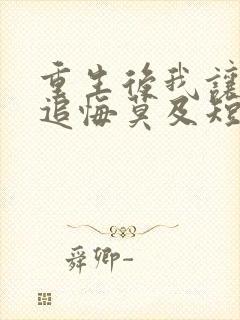 重生後我讓
追悔莫及短
舜卿-